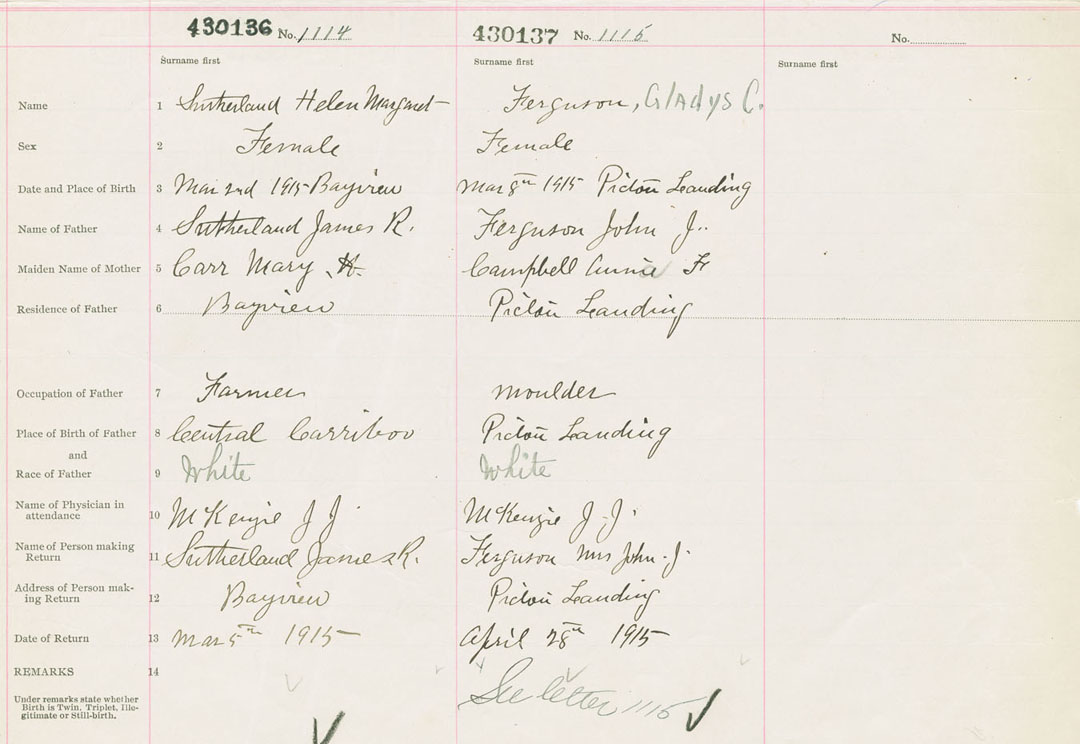 430136 No. 1114 430137 No. 1115 No.
Surname first Surname first Surname first
Name 1 Sutherland Helen Margaret Ferguson, Gladys C.
Sex 2 Female Female
Date and Place of Birth 3 Mar 2nd 1915 Bayview Mar 8th 1915 Pictou Landing
Name of Father 4 Sutherland James R. Ferguson John J.
Maiden Name of Mother 5 Carr Mary Campbell Annie
Residence of Father 6 Bayview Pictou Landing
Occupation of Father 7 Farmer Moulder
Place of Birth of Father 8 Central Carribou Pictou Landing
and
Race of Father 9 White White
Name of Physician in
attendance 10 McKenzie J J. McKenzie J. J.
Name of Person making
Return 11 Sutherland James R. Ferguson Mrs John. J.
Address of Person mak-
ing Return 12 Bayview Pictou Landing
Date of Return 13 Mar 5th 1915 April 28th 1915
REMARKS 14
See letter 1115
Under remarks state whether
Birth is Twin, Triplet, Ille-
gitimate or Still-birth.